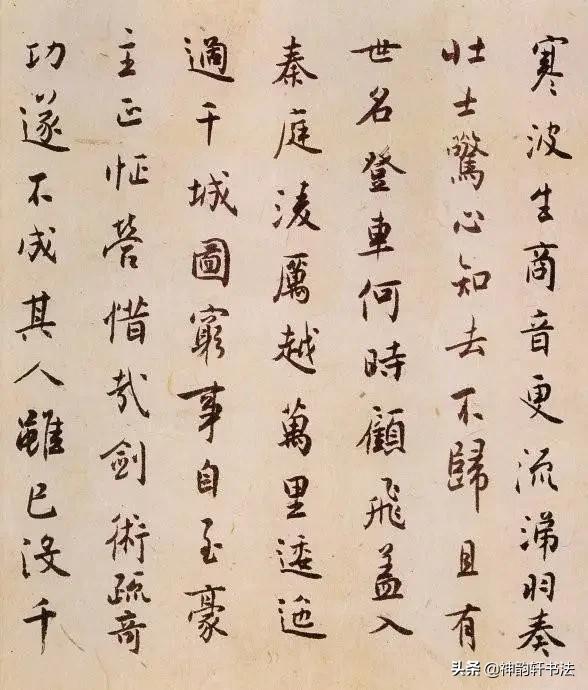 寒波生商音更流涕羽奏
壯士驚心知去不歸且有
世名登車何時顧飛蓋入
秦庭淩厲越萬里逶迤
過千城圖窮事自至豪
主正怔營惜哉劍術疏奇
功遂不成其人雖已沒千
头条 @神韵轩书法